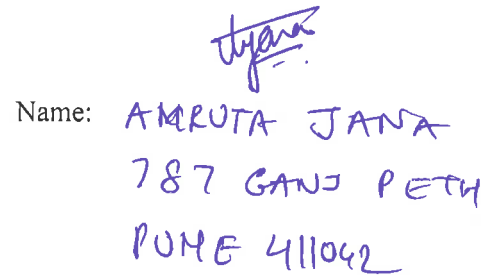 Name: AMRUTA JANA
787 GANJ PETH
PUNE 411042